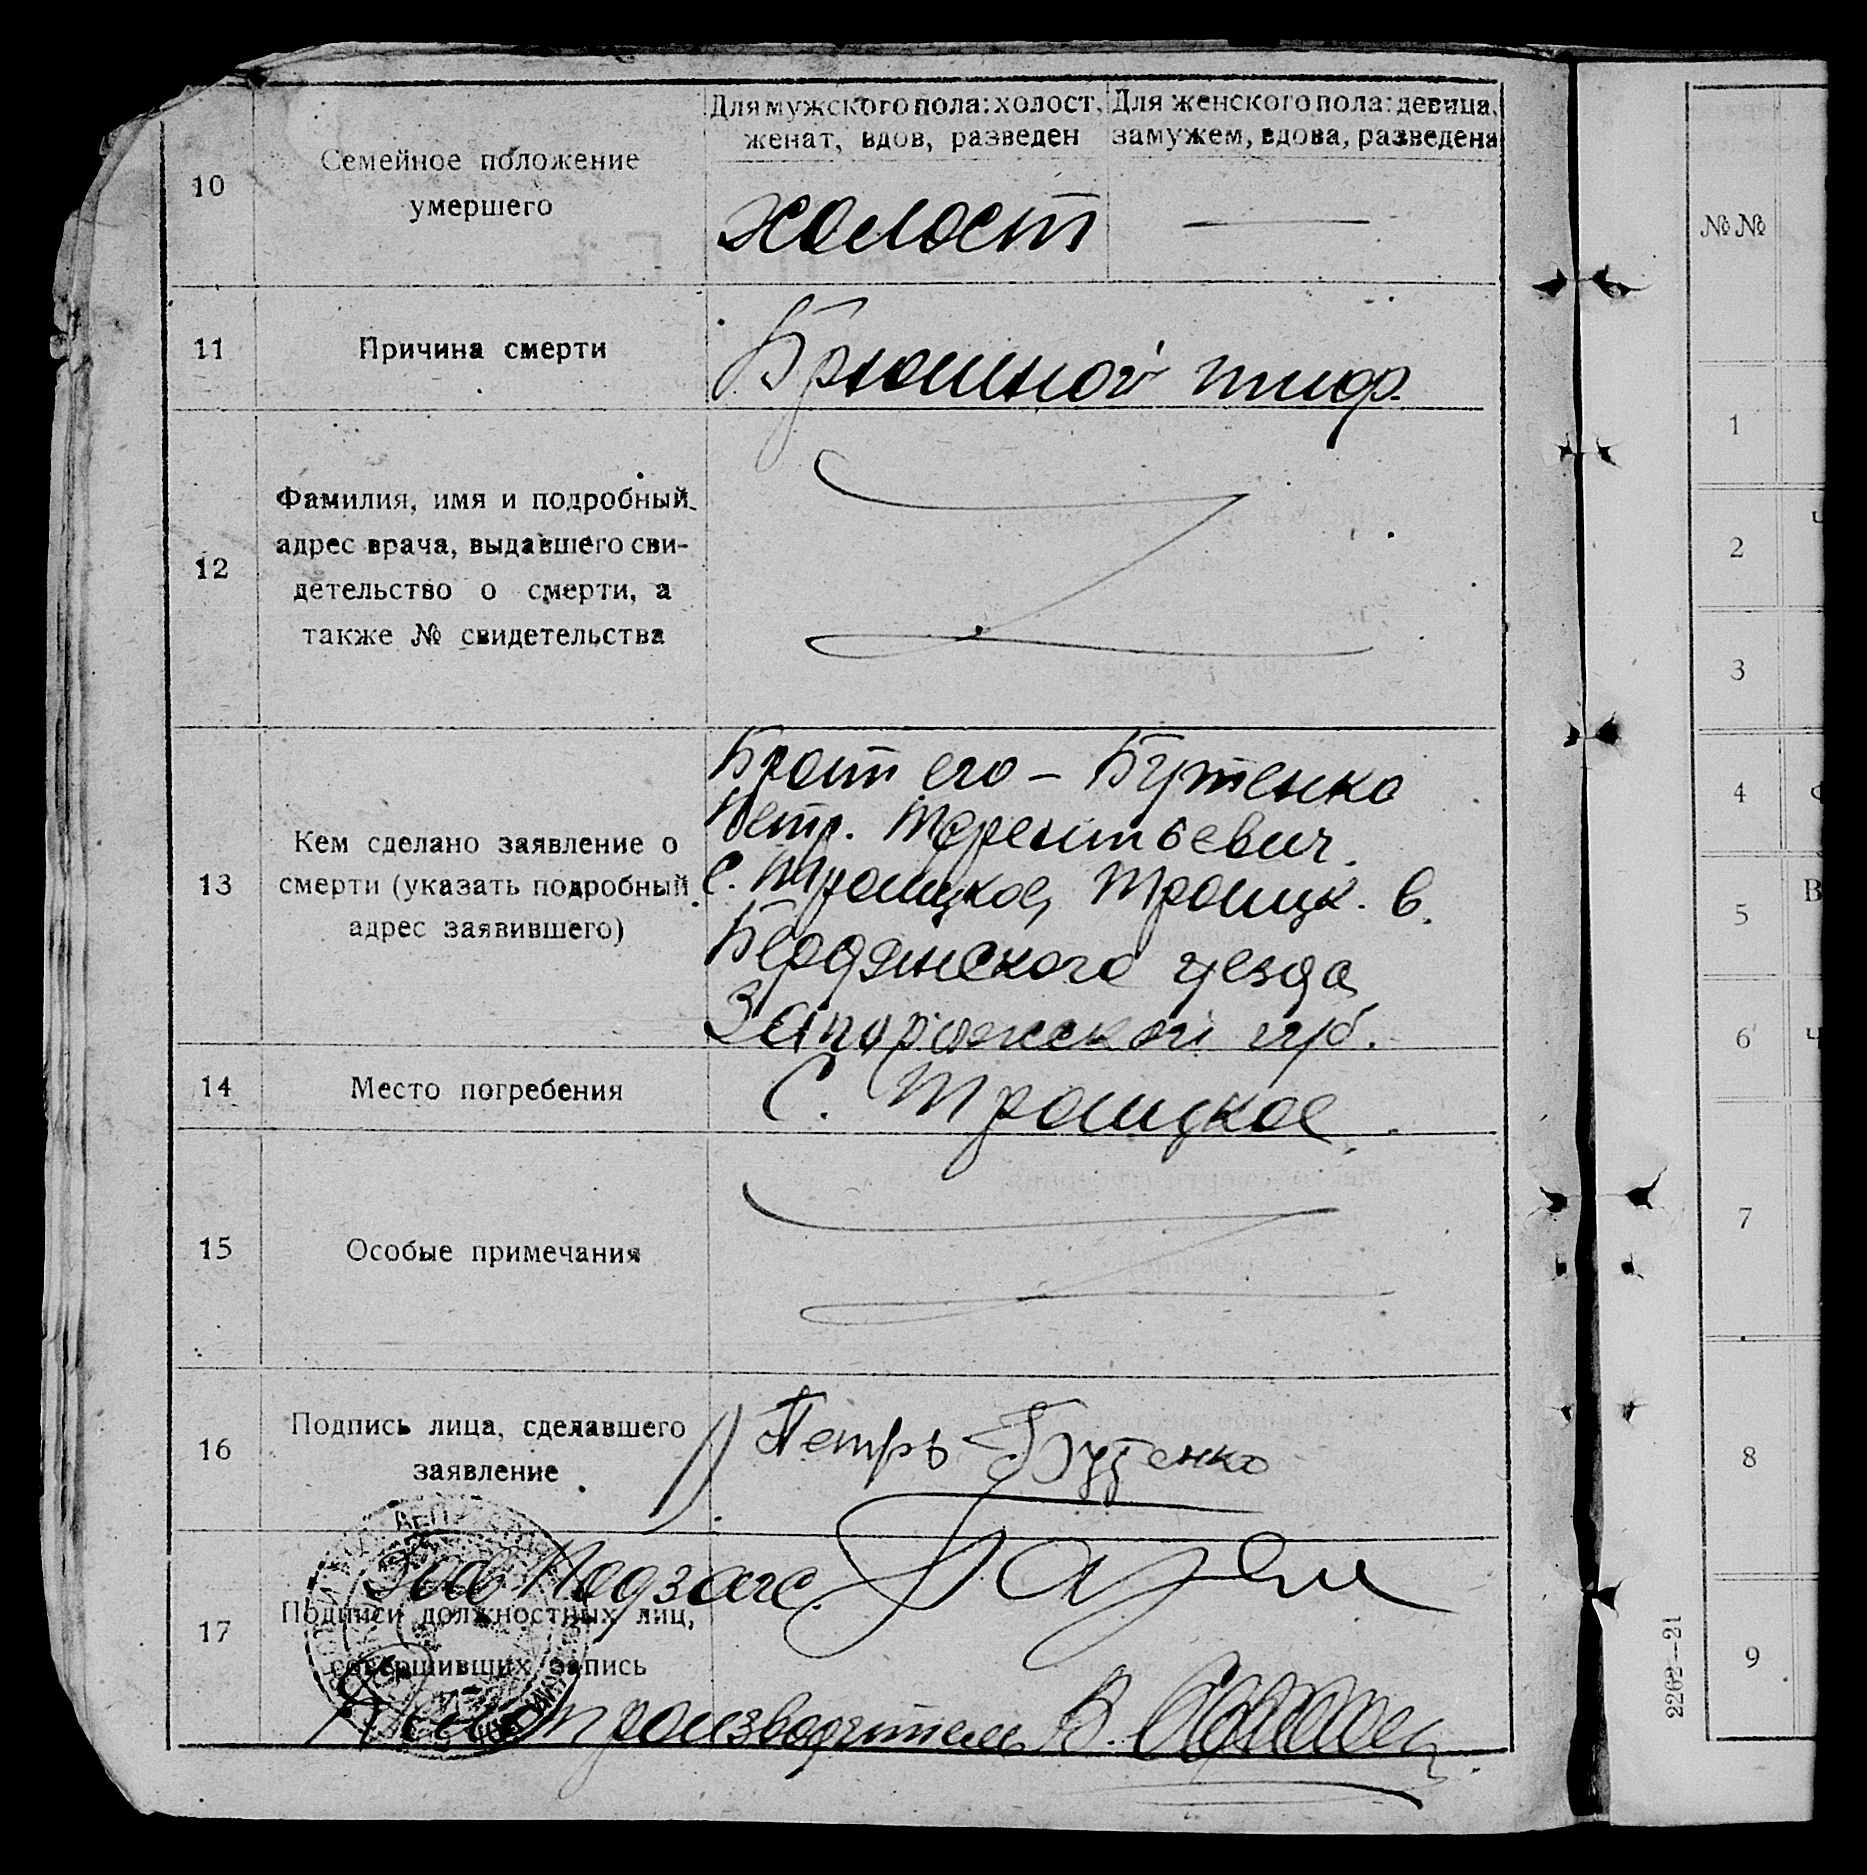 10
Семейное положение
умершего
Для мужского пола: холост,
женат, вдов, разведен
Для женского пола: девица,
замужем, вдова, разведена
холост
—
11
Причина смерти
Брюшной тиф.
12
Фамилия, имя и подробный
адрес врача, выдавшего сви-
детельство о смерти, а
также № свидетельства
13
Кем сделано заявление о
смерти (указать подробный
адрес заявившего)
Брат его – Бутенко
Петр. Терентьевич.
с. Троицкое, Троицк. в.
Бердянского уезда
Запорожской губ.
14
Место погребения
С. Троицкое
15
Особые примечания
16
Подпись лица, сделавшего
заявление
Петръ Бутенко
17
Подписи должностных лиц,
совершивших запись
Зав Подзагс.
Делопроизводитель В.
№№
1
2
3
4
5
6
7
8
9
2262—21